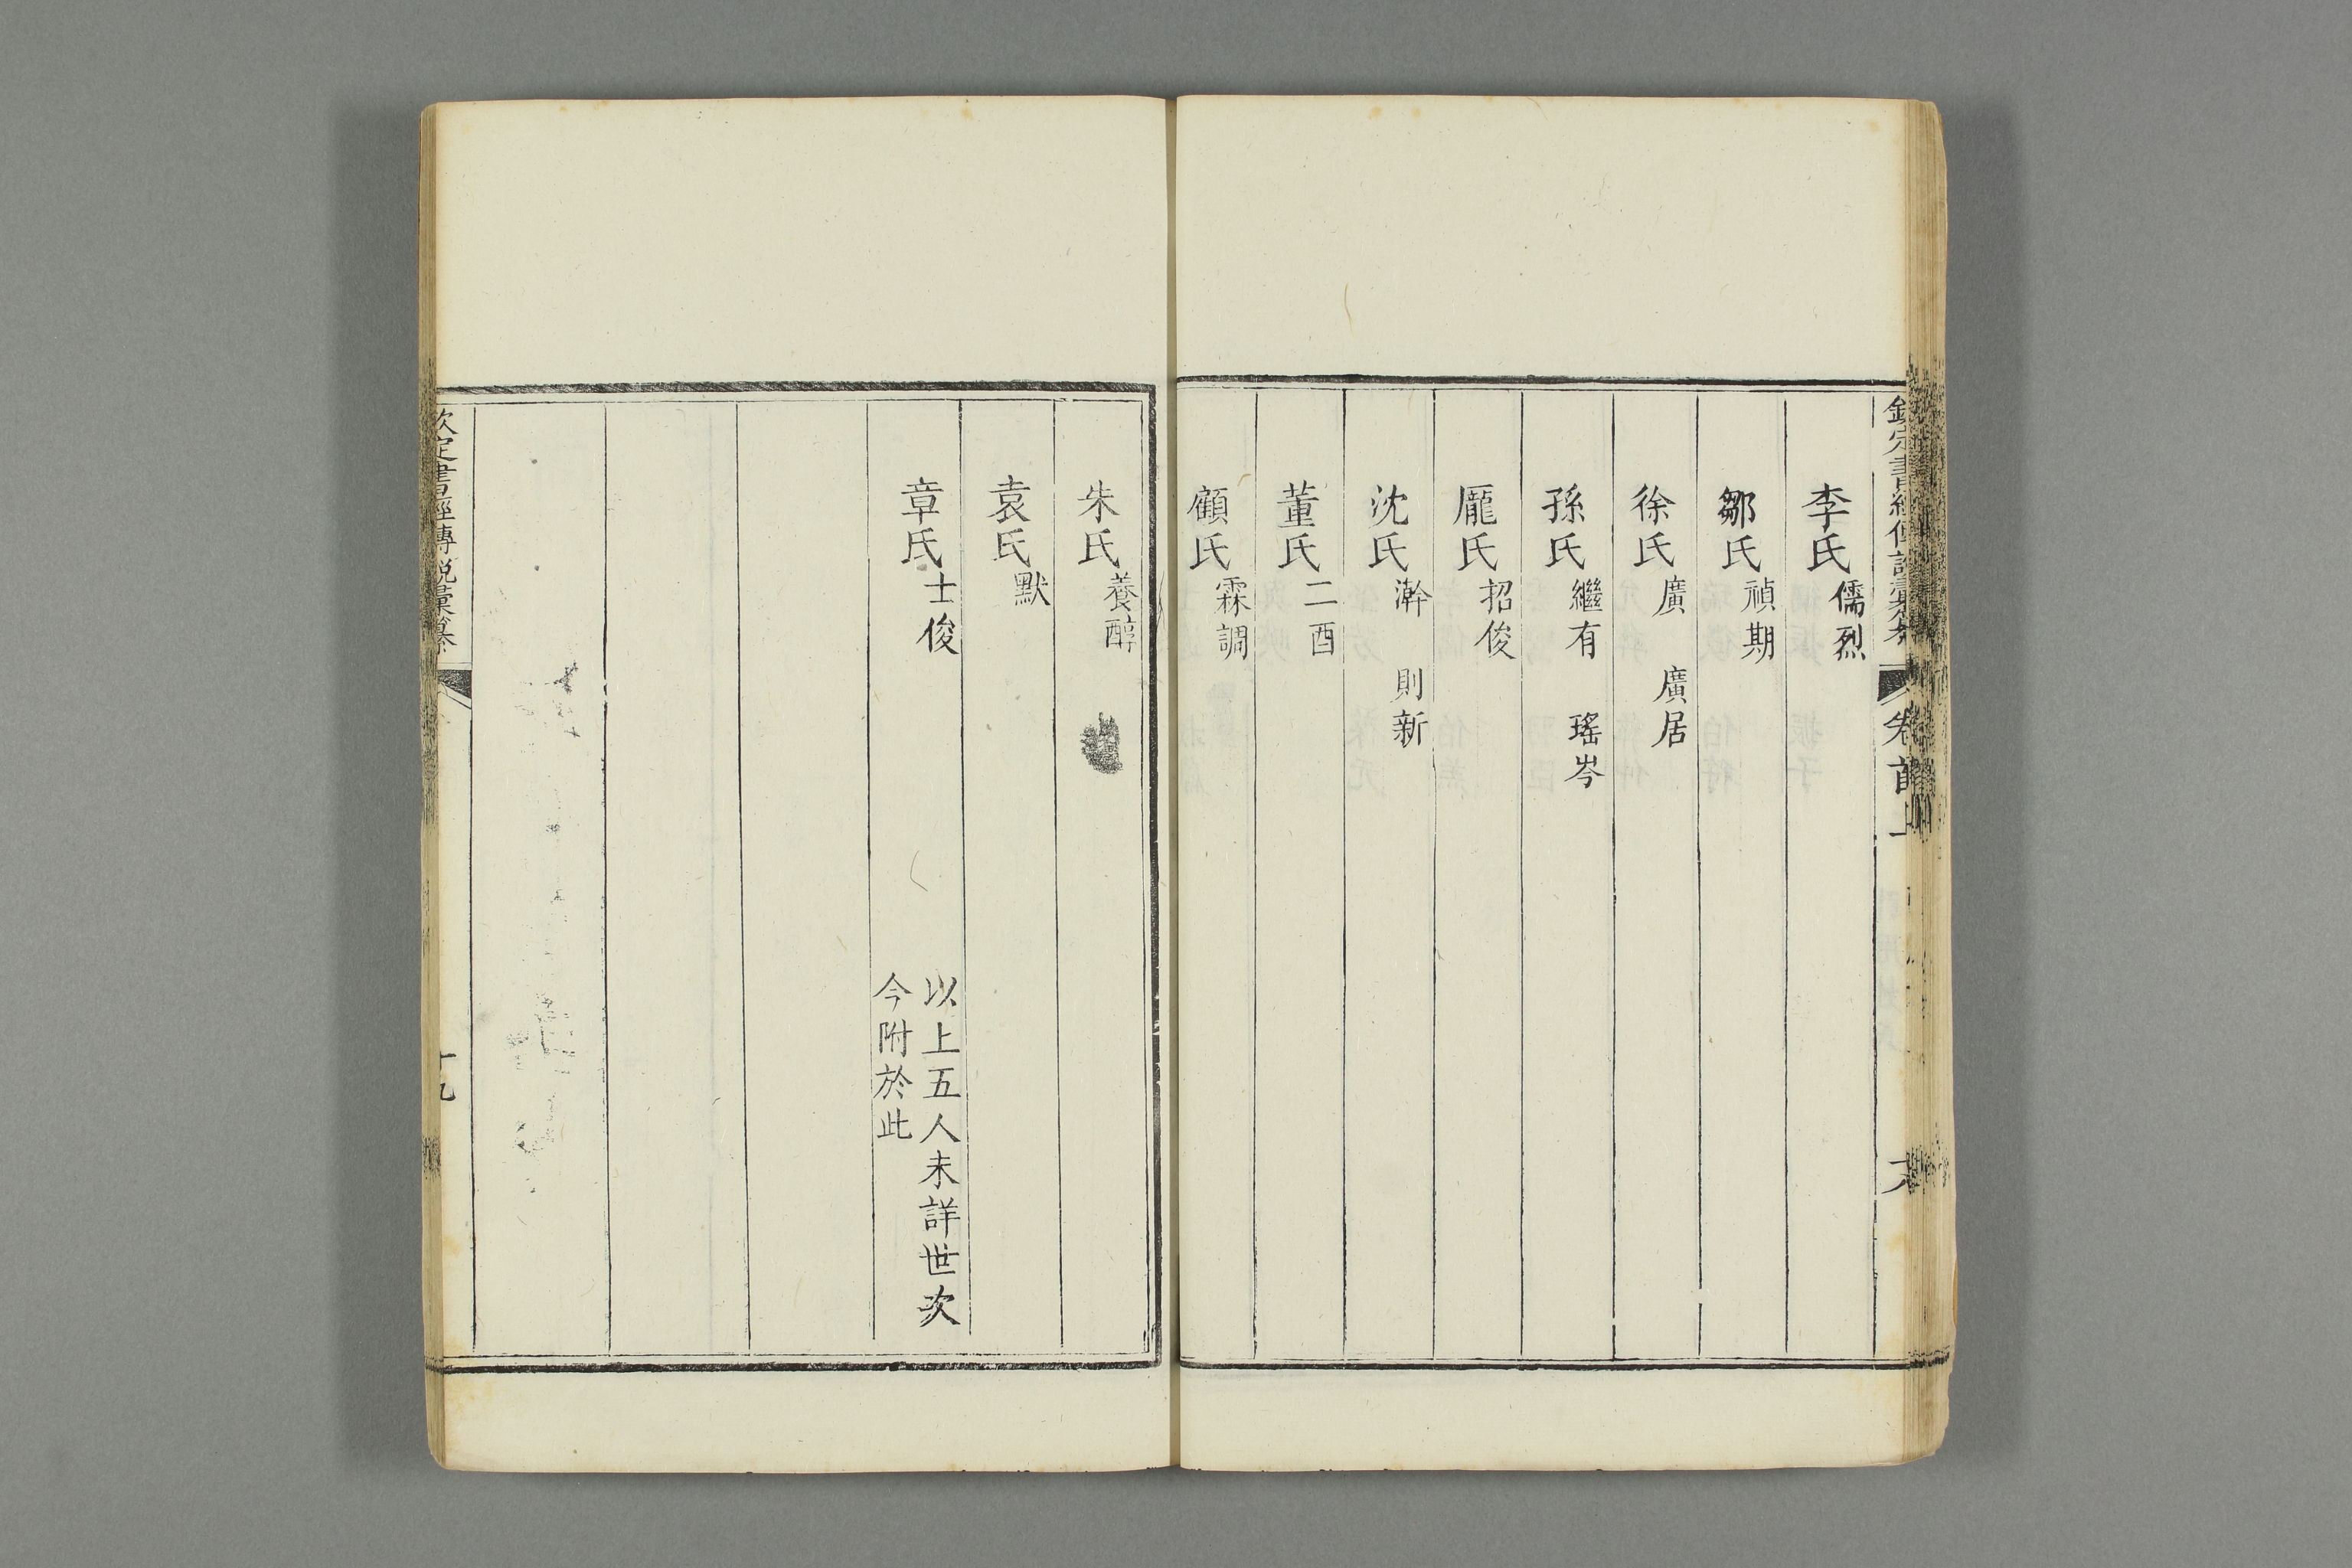 李氏儒烈
鄒氏禎期
徐氏廣 廣居
孫氏繼有 瑤岑
龎氏招俊
沈氏澣 則新
董氏二酉
顧氏霖調
朱氏養醇
袁氏默
章氏士俊
以上五人未詳世次
今附於此
欽定書經傳說彙纂
十九